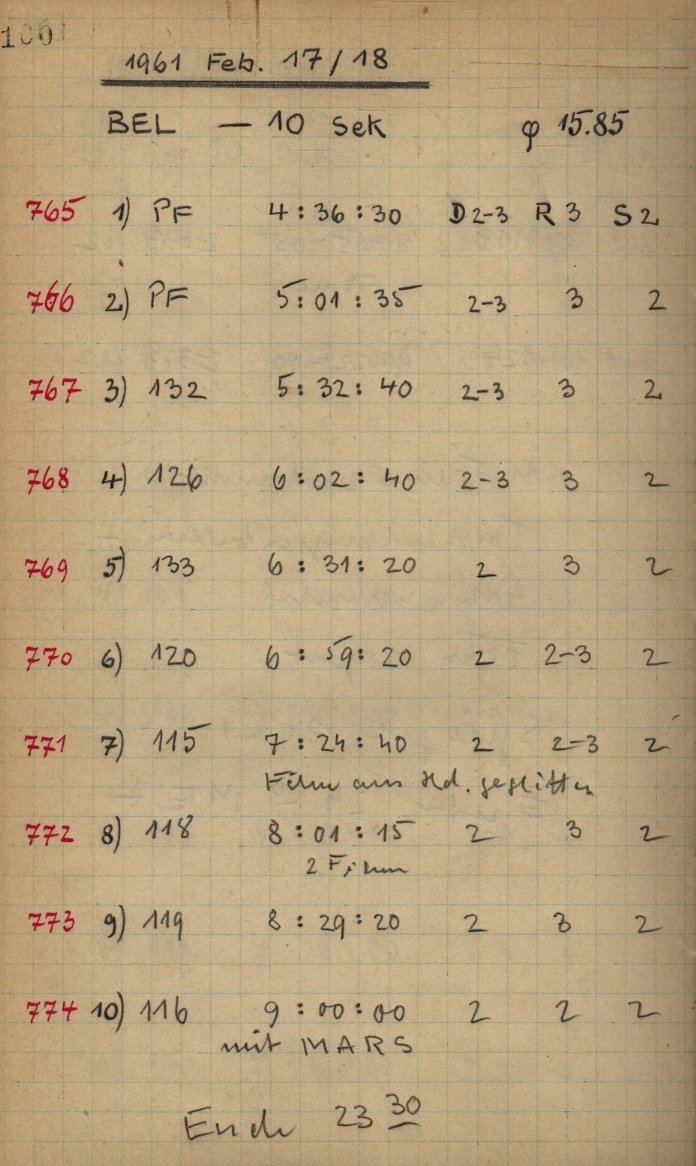 1961 Feb. 17/18
BEL — 10 Sek φ 15.85
765 1) PF 4:36:30 D 2-3 R 3 S 2
766 2) PF 5:01:35 2-3 3 2
767 3) 132 5:32:40 2-3 3 2
768 4) 126 6:02:40 2-3 3 2
769 5) 133 6:31:20 2 3 2
770 6) 120 6:59:20 2 2-3 2
771 7) 115 7:24:40 2 2-3 2
Film aus Hd. geglitten
772 8) 118 8:01:15 2 3 2
2 Film
773 9) 119 8:29:20 2 3 2
774 10) 116 9:00:00 2 2 2
mit MARS
Ende 23 30